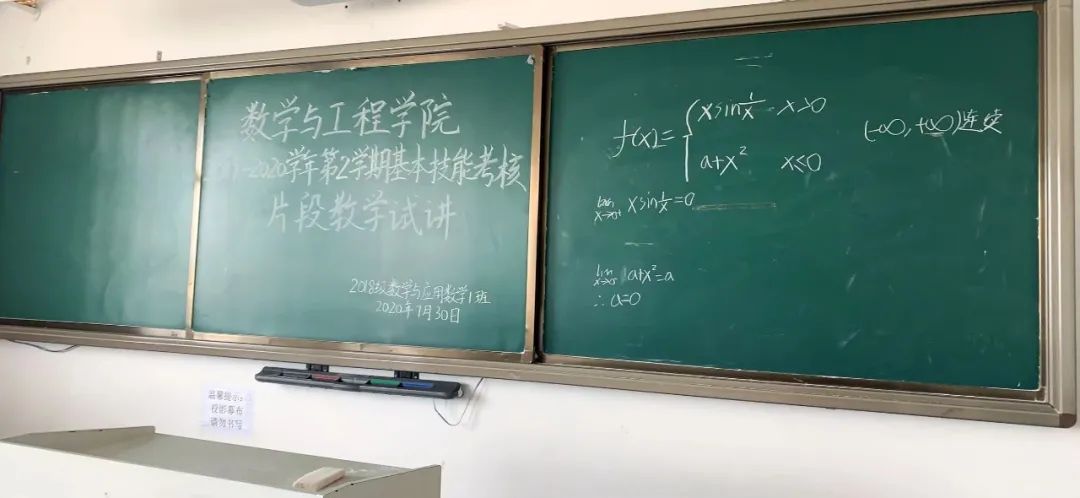 数学与工程学院
-2020学年第2学期基本技能考核
片段教学试讲
2018级数学与应用数学1班
2020年7月30日
f(x)= { xsin 1/x x>0
a+x² x≤0
(-∞, +∞)连续
lim x→0⁺ xsin 1/x =0
lim x→0⁻ a+x²=a
∴a=0
温馨提示:
投影幕布
请勿书写